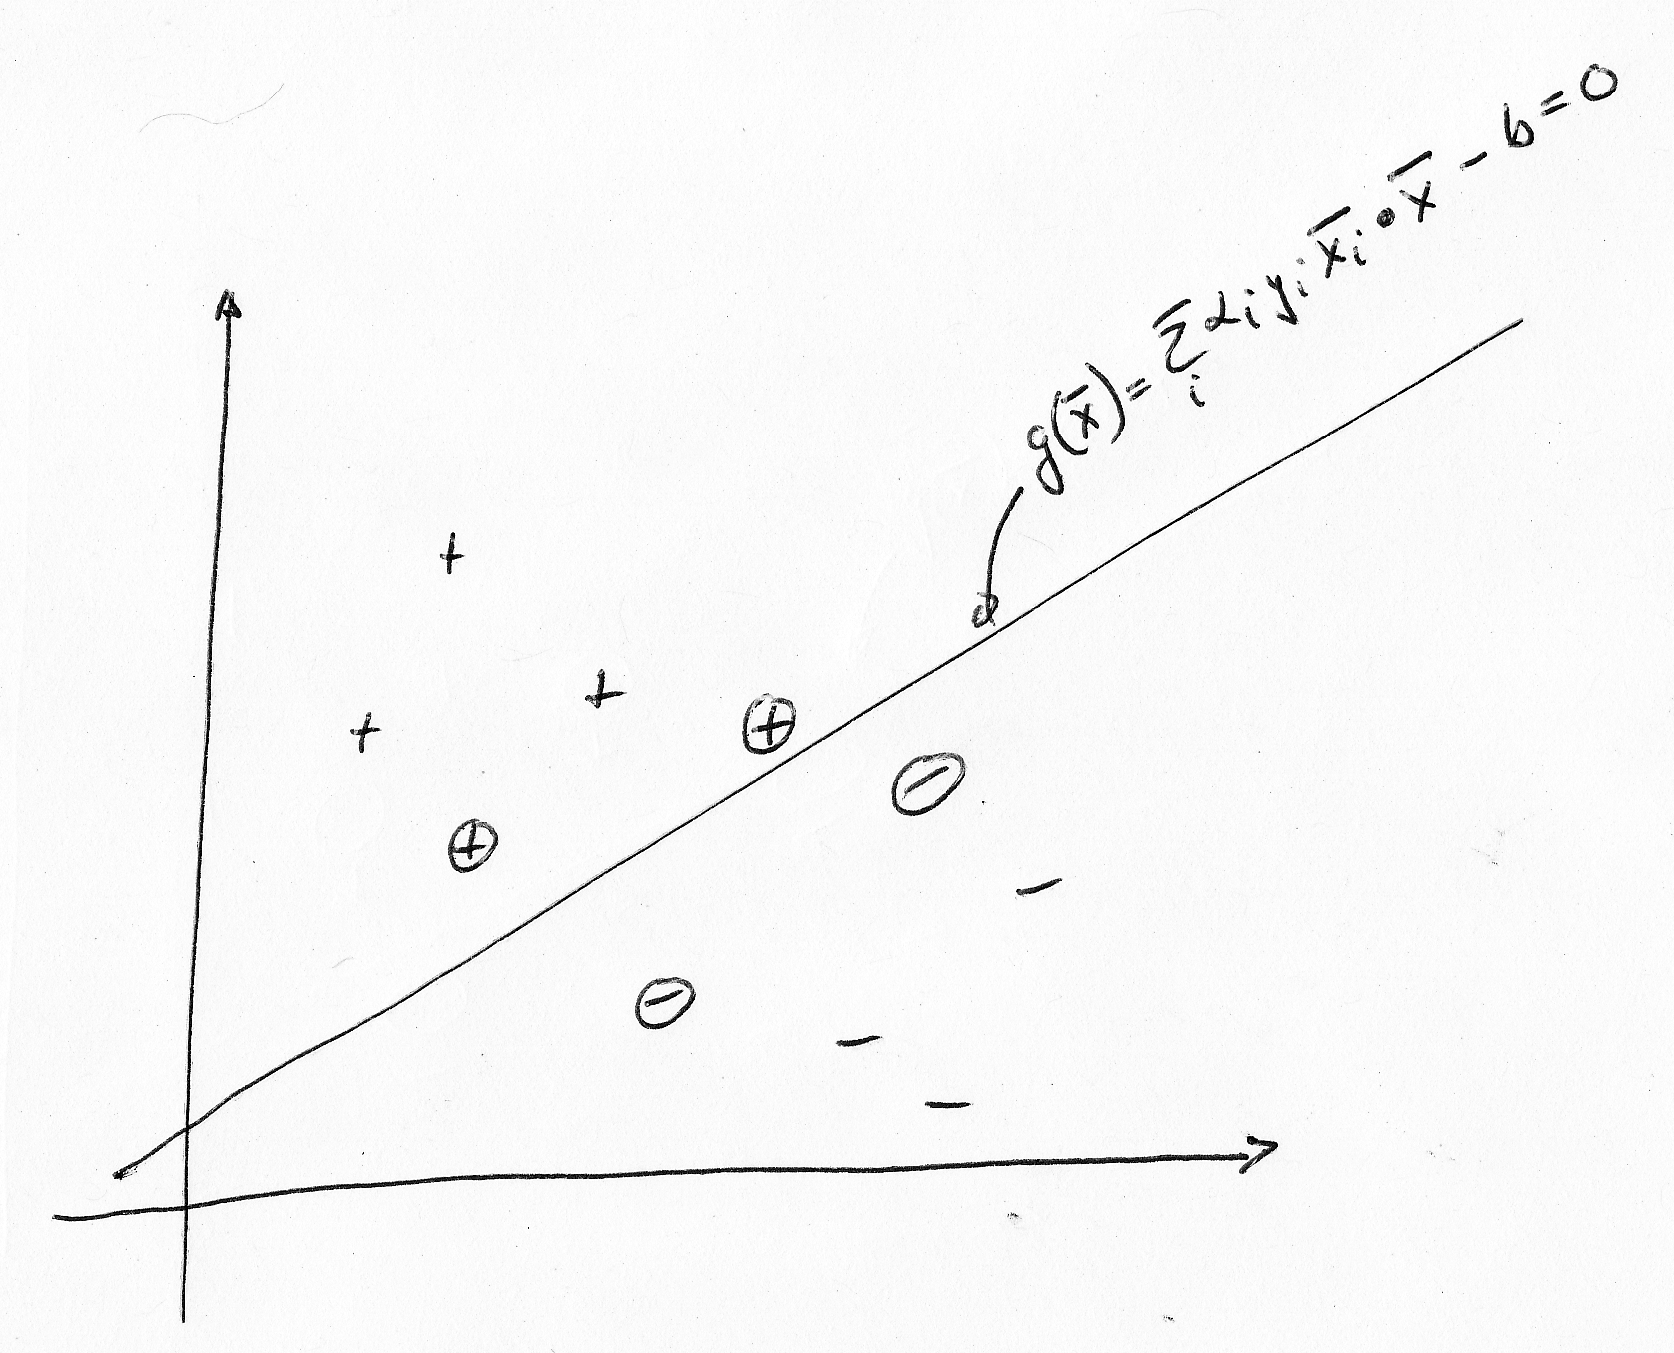 g(x̄) = Σ_i α_i y_i x̄_i • x̄ - b = 0
+
+
+
⊕
⊖
⊕
-
⊖
-
-